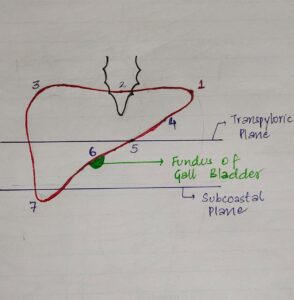 3
2
1
4
Transpyloric
Plane
5
6
Fundus of
Gall Bladder
7
Subcostal
Plane